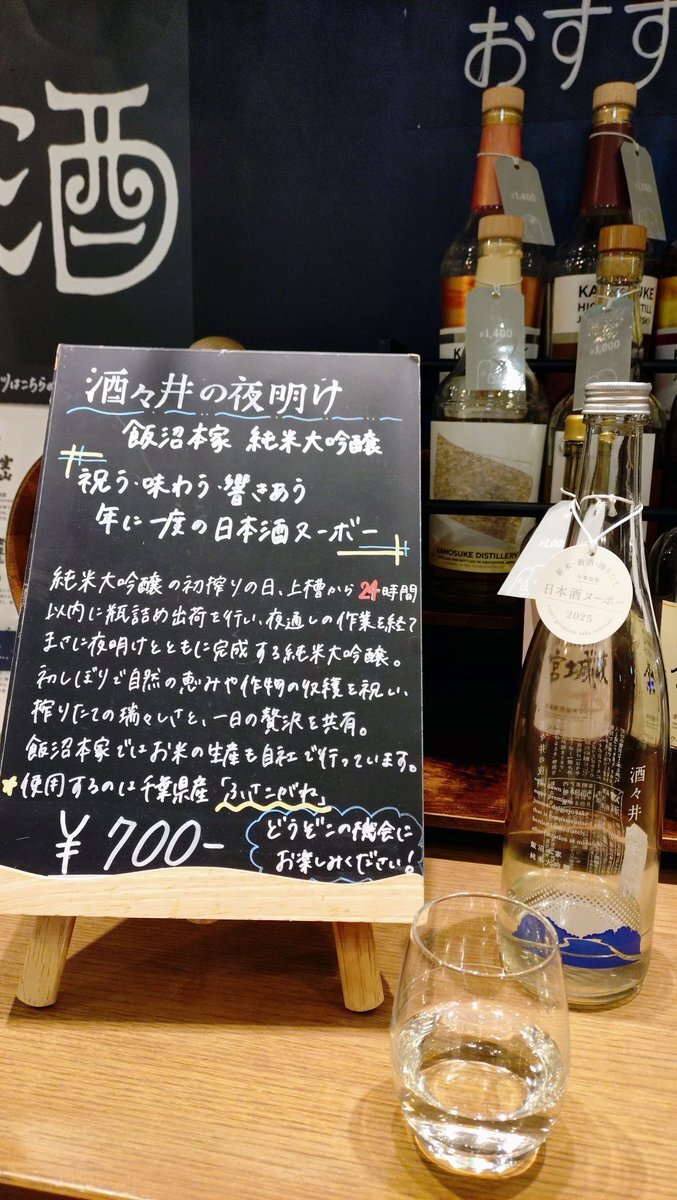 酒
おすす
¥1,400
¥1,400
¥1,000
KANOSUKE
KANOSUKE DISTILLERY
酒々井の夜明け
飯沼本家 純米大吟醸
祝う・味わう・響きあう
年に一度の日本酒ヌーボー
純米大吟醸の初搾りの日、上槽から24時間
以内に瓶詰め出荷を行い、夜通しの作業を経て
まさに夜明けとともに完成する純米大吟醸。
初しぼりで自然の恵みや作物の収穫を祝い、
搾りたての瑞々しさと、一日の贅沢を共有。
飯沼本家ではお米の生産も自社で行っています。
使用するのは千葉県産「ふさこがね」
¥700-
どうぞこの機会に
お楽しみください!
日本酒ヌーボー
2025
宮城峡
酒々井